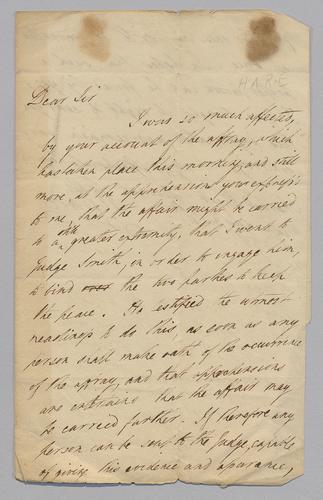 HARE
Dear Sir
I was so much affected,
by your account of the affray, which
has taken place this morning, and still
more, at the apprehensions you express'd
to me, that the affair might be carried
to a still greater extremity, that I went to
Judge Smith, in order to engage him,
to bind over the two parties to keep
the peace. He testified the utmost
readiness to do this, as soon as any
person shall make oath of the occurrence
of the affray, and that apprehensions
are entertained that the affair may
be carried further. If therefore any
person can be sent to the Judge, capable
of giving this evidence and assurance,